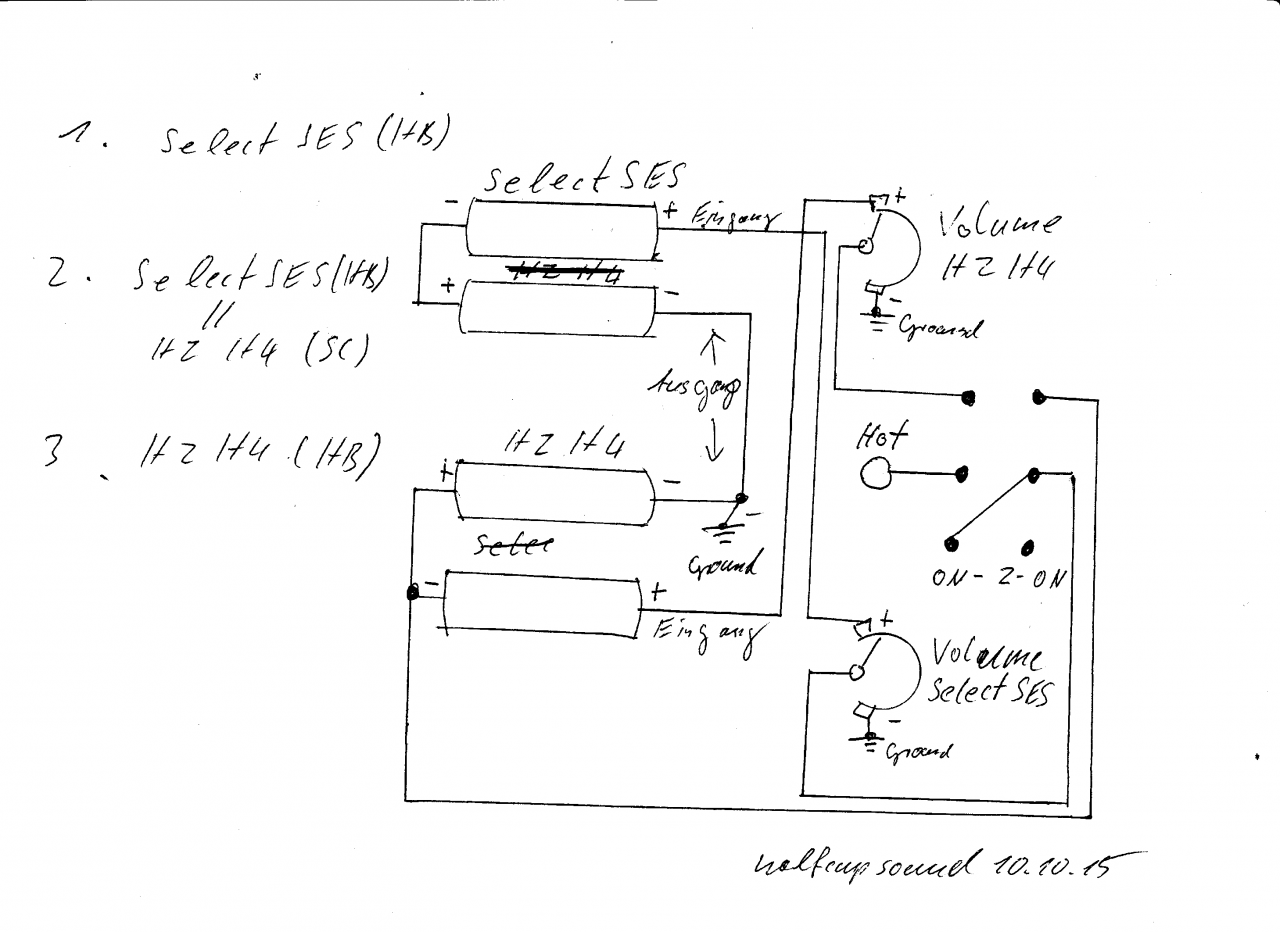 1. Select SES (HB)
Select SES
- + Eingang
+ Volume
HZ H4
-
Ground
2. Select SES (HB)
//
HZ H4 (SC)
+ -
Ausgang
Hot
3. HZ H4 (HB)
HZ H4
+ -
-
Ground
ON-2-ON
- +
Eingang
+
Volume
Select SES
-
Ground
sound 10.10.15